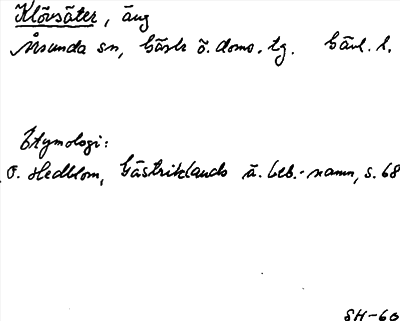 Klövsäter, äng
Årsunda sn, Gästr. ö. doms. tg. Gävl. l.
Etymologi:
F. Hedblom, Gästriklands ä. beb.-namn, s. 68
SH-60